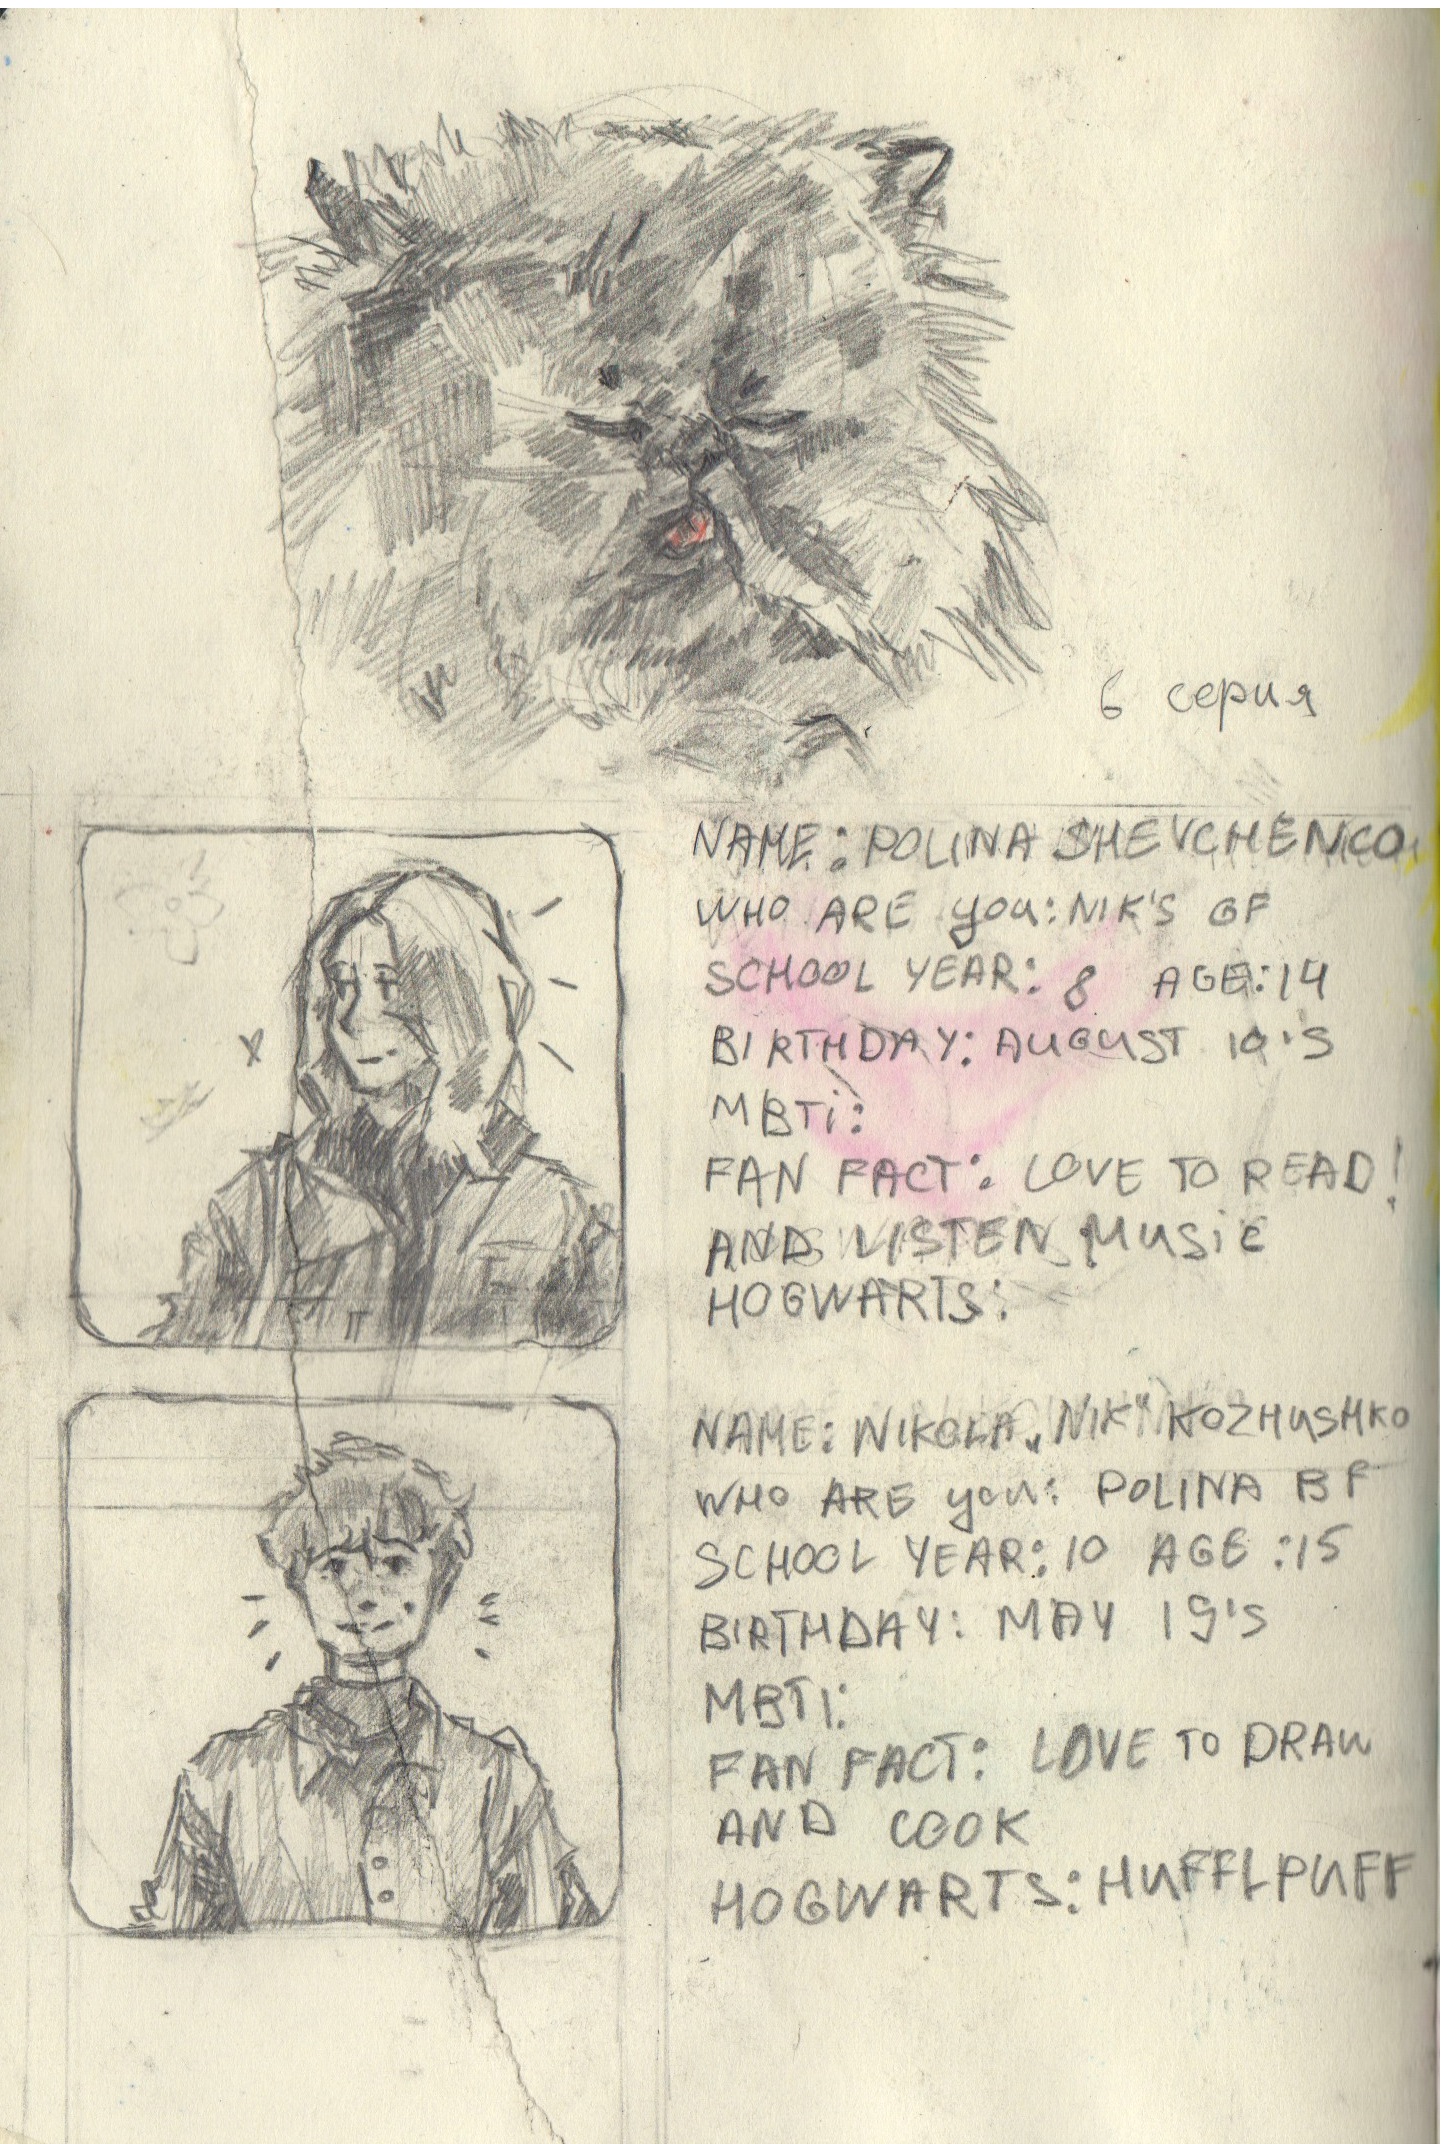 6 серия
NAME: POLINA SHEVCHENCO
WHO ARE you: NIK'S GF
SCHOOL YEAR: 8 AGE: 14
BIRTHDAY: AUGUST 10'S
MBTi:
FAN FACT: LOVE TO READ!
AND LISTEN MUSiC
HOGWARTS:
NAME: NIKOLA „NIK" KOZHUSHKO
WHO ARE you: POLINA BF
SCHOOL YEAR: 10 AGE :15
BIRTHDAY: MAY 19'S
MBTI:
FAN FACT: LOVE TO DRAW
AND COOK
HOGWARTS: HUFFLPUFF